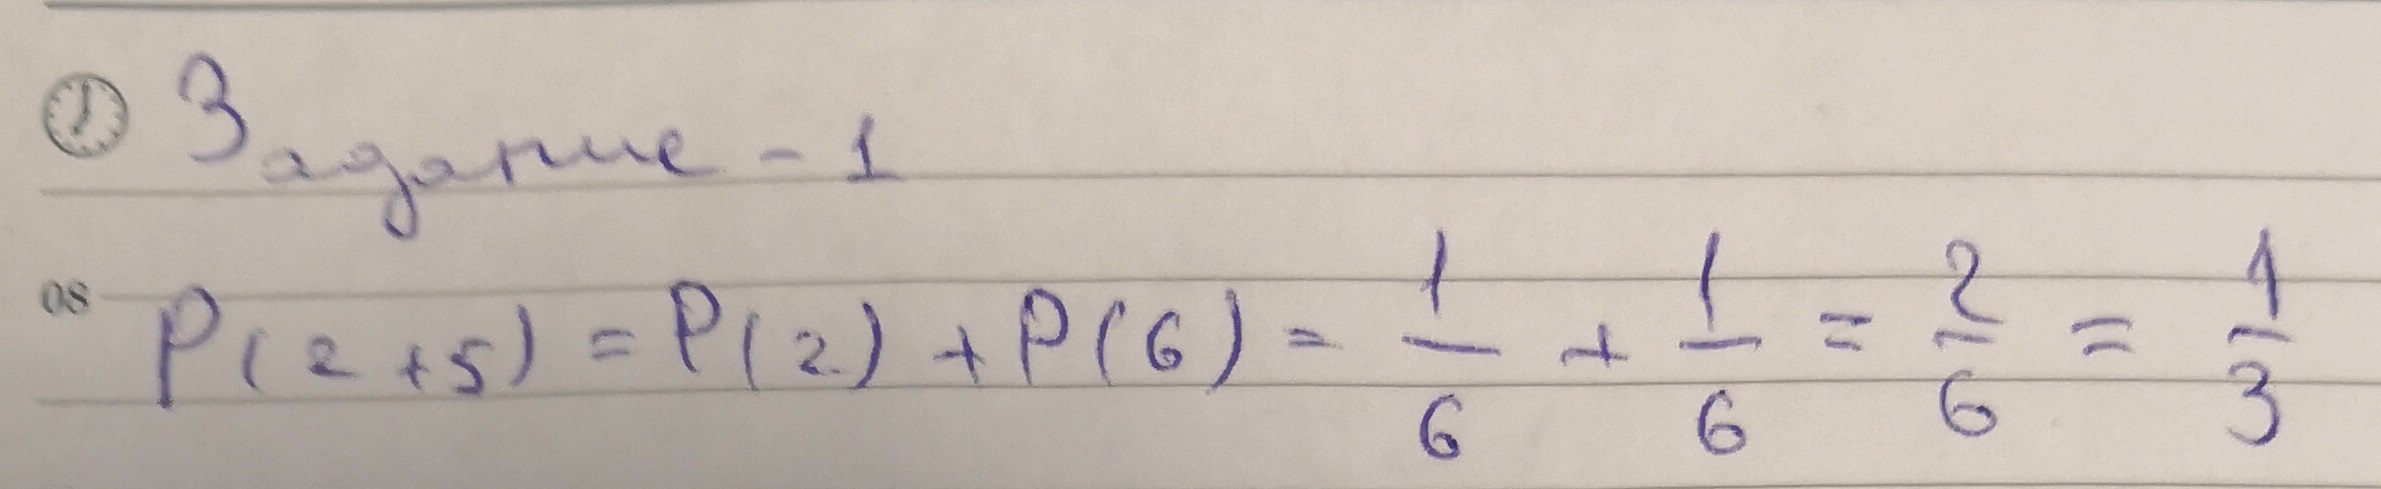 Задание - 1
08 P(2+5) = P(2) + P(6) = 1/6 + 1/6 = 2/6 = 1/3